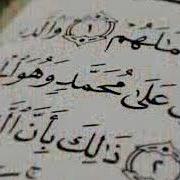 أَعْمَـٰلَهُمْ ١ وَالَّذِ
عَلَىٰ مُحَمَّدٍ وَهُوَ الْ
٢ ذَٰلِكَ بِأَنَّ الَّ